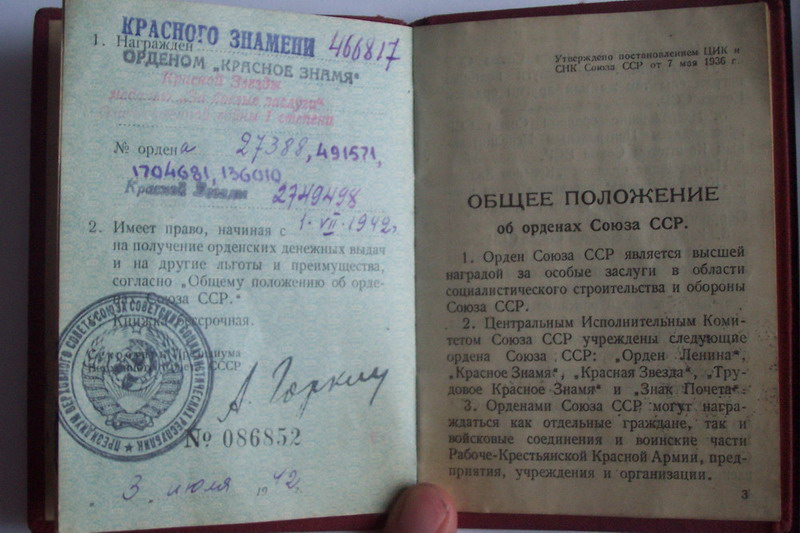 КРАСНОГО ЗНАМЕНИ 466817
1. Награжден
ОРДЕНОМ „КРАСНОЕ ЗНАМЯ“
Красной Звезды
боевые заслуги“
войны 1 степени
№ ордена 27388, 491571,
1704681, 136010,
Красной Звезды 2749498
2. Имеет право, начиная с 1-VII-1942г.
на получение орденских денежных выдач
и на другие льготы и преимущества,
согласно „Общему положению об орде-
Союза ССР.“
Книжка бессрочная.
Президиума
СССР
ПРЕЗИДИУМ ВЕРХОВНОГО СОВЕТА СОЮЗА СОВЕТСКИХ СОЦИАЛИСТИЧЕСКИХ РЕСПУБЛИК
А. Горкин
№ 086852
3 июля 1942г.
Утверждено постановлением ЦИК и
СНК Союза ССР от 7 мая 1936 г.
ОБЩЕЕ ПОЛОЖЕНИЕ
об орденах Союза ССР.
1. Орден Союза ССР является высшей
наградой за особые заслуги в области
социалистического строительства и обороны
Союза ССР.
2. Центральным Исполнительным Коми-
тетом Союза ССР учреждены следующие
ордена Союза ССР: „Орден Ленина“,
„Красное Знамя“, „Красная Звезда“, „Тру-
довое Красное Знамя“ и „Знак Почета“.
3. Орденами Союза ССР могут награ-
ждаться как отдельные граждане, так и
войсковые соединения и воинские части
Рабоче-Крестьянской Красной Армии, пред-
приятия, учреждения и организации.
3